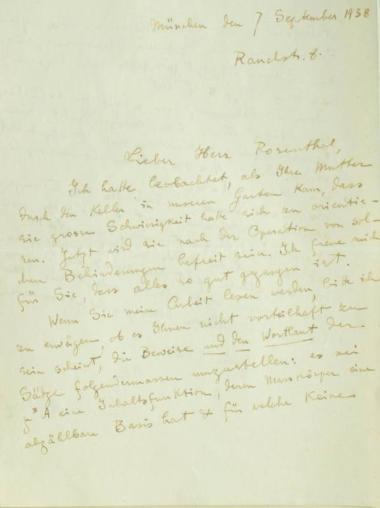 München den 7 September 1938
Rauchstr. 8.
Lieber Herr Rosenthal,
Ich hatte beobachtet, als Ihre Mutter
durch den Keller in unseren Garten kam, dass
sie grosse Schwierigkeit hatte sich zu orientie-
ren. Jetzt wird sie nach der Operation von sol-
chen Behinderungen befreit sein. Ich freue mich
für Sie, dass alles so gut gegangen ist.
Wenn Sie mein Arbeit lesen werden, bitte ich
zu erwägen, ob es Ihnen nicht vorteilhaft zu
sein scheint, die Beweise und den Wortlaut der
Sätze folgendermassen umzustellen: es sei
A eine Inhaltsfunktion, deren Masskörper eine
abzählbare Basis hat & für welche Keines